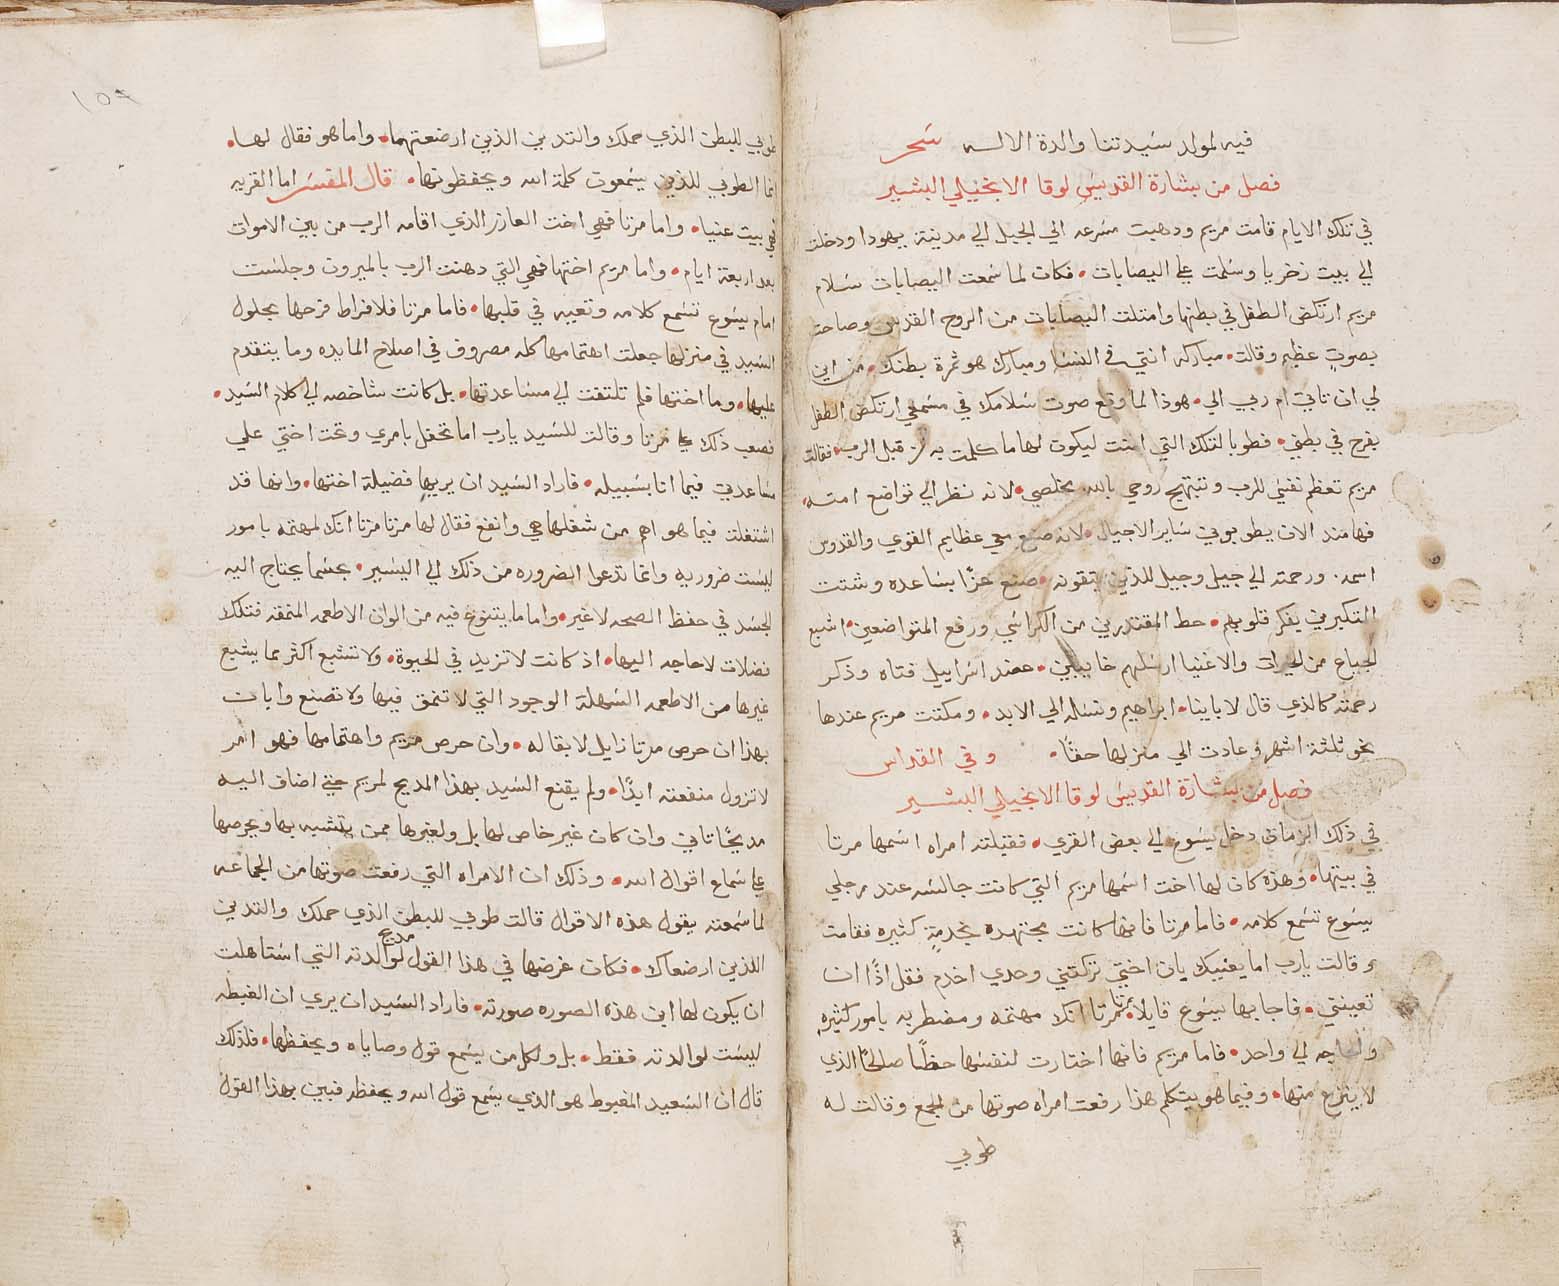 فيه لمولد سيدتنا والدة الاله سحر
فصل من بشارة القديس لوقا الانجيلي البشير
في تلك الايام قامت مريم ودهبت مسرعه الي الجبل الي مدنية يهودا ودخلت
الي بيت زخريا وسلمت علي اليصابات • فكان لما سمعت اليصابات سلام
مريم ارتكض الطفل في بطنها وامتلت اليصابات من الروح القدس وصاحت
بصوت عظيم وقالت • مباركه انتي في النسا ومبارك هو ثمرة بطنك • من اين
لي ان تاتي ام ربي الي • هوذا لما وقع صوت سلامك في مسمعي ارتكض الطفل
بفرح في بطني • فطوبا لتلك التي امنت ليكون لها ما كلمت به من قبل الرب • فقالت
مريم تعظم نفسي للرب وتبتهج روحي بالله مخلصي • لانه نظر الي تواضع امته •
فها منذ الان يطوبوني ساير الاجيال • لانه صنع بي عظايم القوي والقدوس
اسمه • ورحمته الي جيل وجيل للذين يتقونه • صنع عزًا بساعده وشتت
المتكبرين بفكر قلوبهم • حط المقتدرين من الكراسي ورفع المتواضعين • اشبع
الجياع من الخيرات والاغنيا ارسلهم خايبين • عضد اسراييل فتاه وذكر
رحمته كالذي قال لاباينا • ابراهيم ونسله الي الابد • ومكثت مريم عندها
نحو ثلثة اشهر وعادت الي منزلها حقًا • وفي القداس
فصل من بشارة القديس لوقا الانجيلي البشير
في ذلك الزمان دخل يسوع الي بعض القري • فقبلته امراه اسمها مرتا
في بيتها • وهذه كان لها اخت اسمها مريم التي كانت جالسه عند رجلي
يسوع تسمع كلامه • فاما مرتا فانها كانت مجتهده بخدمةٍ كثيره فقامت
وقالت يارب اما يعنيك يان اختي تركتني وحدي اخدم فقل اذًا ان
تعينني • فاجابها يسوع قايلًا • مرتا مرتا انك مهتمه ومضطربه بامور كثيره
والحاجه الي واحد • فاما مريم فانها اختارت لنفسها حظًا صالحًا الذي
لا ينزع منها • وفيما هو يتكلم هذا رفعت امراه صوتها من الجمع وقالت له
طوبي
١٥٨
طوبي للبطن الذي حملك والتديين الذين ارضعتهما • واما هو فقال لها •
انما الطوبي للذين يسمعون كلمة الله ويحفظونها • قال المفسر اما القريه
فهي بيت عنيا • واما مرتا فهي اخت العازر الذي اقامه الرب من بين الاموات
بعد اربعة ايام • واما مريم اختها فهي التي دهنت الرب بالميرون وجلست
امام يسوع تسمع كلامه وتعيه في قلبها • فاما مرتا فلافراط فرحها بحلول
السيد في منزلها جعلت اهتمامها كله مصروف في اصلاح المايده وما يتقدم
عليها • وما اختها فلم تلتفت الي مساعدتها • بل كانت شاخصه الي كلام السيد •
فصعب ذلك علي مرتا وقالت للسيد يارب اما تحفل بامري وتحت اختي علي
مساعدتي فيما انا بسبيله • فاراد السيد ان يريها فضيلة اختها • وانها قد
اشتغلت فيما هو اهم من شغلها هي وانفع فقال لها مرتا مرتا انك لمهتمه بامور
ليست ضروريه وانما تدعوا الضروره من ذلك الي اليسير • بحسبما يحتاج اليه
الجسد في حفظ الصحه لا غير • واما ما يتنوع فيه من الوان الاطعمه المنمقه فتلك
فضلات لا حاجه اليها • اذ كانت لا تزيد في الحيوة • ولا تشبع اكثر مما يشبع
غيرها من الاطعمه السهلة الوجود التي لا تنمق فيها ولا تصنع وابان
بهذا ان حرص مرتا زايل لا بقا له • وان حرص مريم واهتمامها فهو امر
لا تزول منفعته ابدًا • ولم يقنع السيد بهذا المديح لمريم حتي اضاف اليه
مديحًا ثاني وان كان غير خاص لها بل ولغيرها ممن يتشبه بها وبحرصها
علي سماع اقوال الله • وذلك ان الامراه التي رفعت صوتها من الجماعه
لما سمعته يقول هذه الاقوال قالت طوبي للبطن الذي حملك والتديين
اللذين ارضعاك • فكان غرضها في هذا القول مديح لوالدته التي استاهلت
ان يكون لها ابن هذه الصوره صورته • فاراد السيد ان يري ان الغبطه
ليست لوالدته فقط • بل ولكل من يسمع قول وصاياه ويحفظها • فلذلك
قال ان السعيد المغبوط هو الذي يسمع قول الله ويحفظه فبين بهذا القول